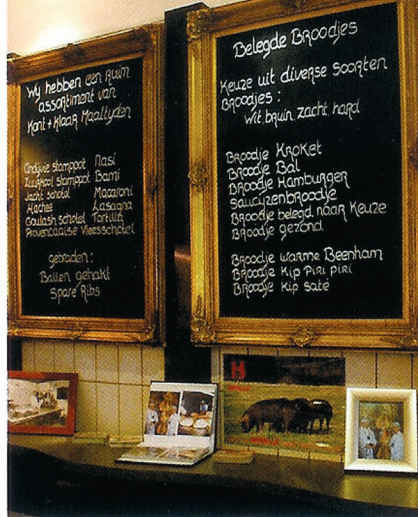 Wij hebben een ruim
assortiment van
Kant + Klaar Maaltijden
Andijvie stamppot Nasi
Zuurkool stamppot Bami
Jacht schotel Macaroni
Hachee Lasagna
Goulash schotel Tortilia
Provencaalse Vleesschotel
gebraden:
Ballen gehakt
Spare Ribs
Belegde Broodjes
Keuze uit diverse soorten
Broodjes:
Wit, bruin, zacht, hard
Broodje Kroket
Broodje Bal
Broodje Hamburger
Saucijzenbroodje
Broodje belegd naar Keuze
Broodje gezond
Broodje warme Beenham
Broodje Kip Piri piri
Broodje Kip saté
H